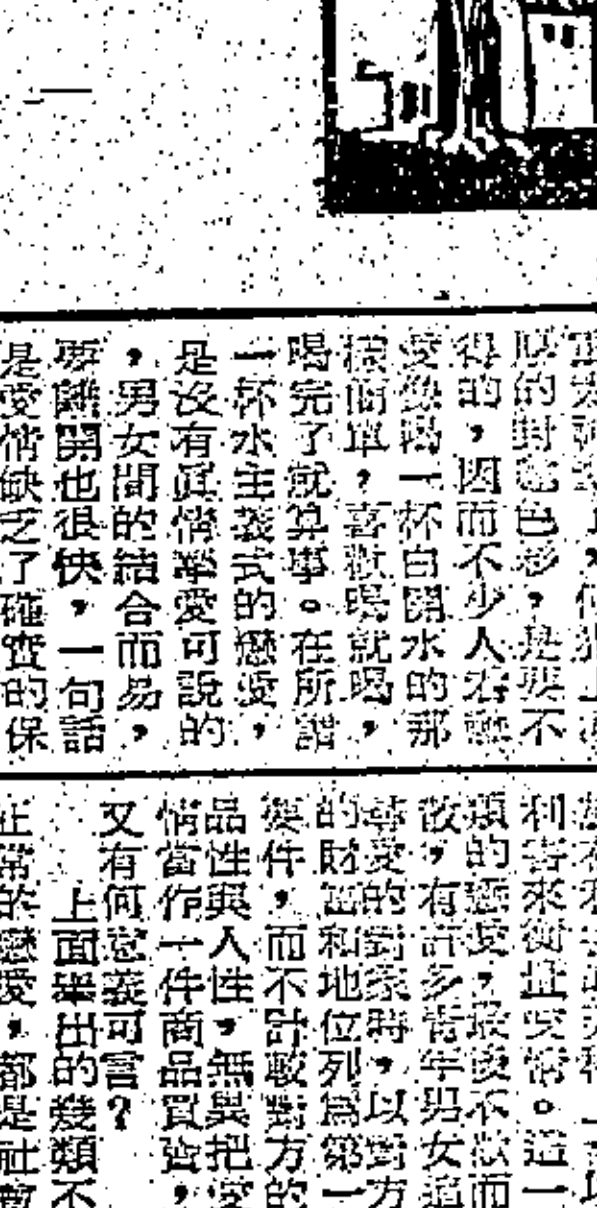 的對
得的，因而不少人在戀
愛像喝一杯白開水的那
樣簡單，喜歡喝就喝，
喝完了就算事。在所謂
一杯水主義式的戀愛，
是沒有眞情摯愛可說的
，男女間的結合而易，
要離開也很快，一句話
是愛情缺乏了確實的保
利害來衡量愛情。這一
類的戀愛，最後不歡而
故，有許多青年男女追
尋愛的對象時，以對方
的財富和地位列爲第一
要件，而不計較對方的
品性與人性，無異把愛
情當作一件商品買賣，
又有何意義可言？
上面舉出的幾類不
正常的戀愛，都是社會